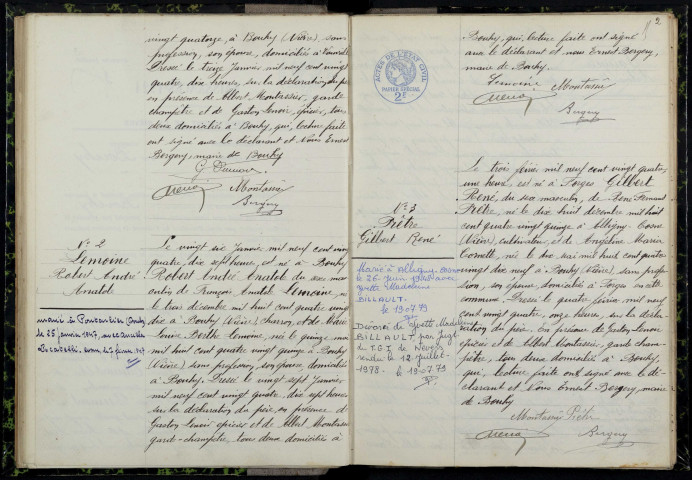 vingt quatorze, à Bouhy (Nièvre) sans
profession, son épouse, domiciliés à
Dressé le treize Janvier, mil neuf cent vingt
quatre, dix heures, sur la déclaration du père
en présence de Albert Montassier, garde
champêtre et de Gaston Lenoir, épicier, tous
deux domiciliés à Bouhy, qui, lecture faite
ont signé avec le déclarant et Nous Ernest
Bergery, maire de Bouhy
Montassier
Bergery
N° 2
Lemoine
Robert André
Anatole
marié à Pontcarlier (Doubs)
le 25 janvier 1947, avec
Le vingt six Janvier mil neuf cent vingt
quatre, dix sept heures, est né à Bouhy
Robert André Anatole du sexe mas
culin, de François Anatole Lemoine, né
le trois décembre mil huit cent quatre vingt
dix à Bouhy (Nièvre) charron, et de Marie
Louise Berthe Lemoine, née le quinze mai
mil huit cent quatre vingt quinze à Bouhy
(Nièvre) sans profession, son épouse, domiciliés
à Bouhy. Dressé le vingt sept Janvier
mil neuf cent vingt quatre, dix sept heures
sur la déclaration du père, en présence de
Gaston Lenoir épicier et de Albert Montassier
garde-champêtre, tous deux domiciliés à
2
Bouhy, qui, lecture faite ont signé
avec le déclarant et nous Ernest Bergery,
maire de Bouhy.
Lemoine Montassier
Bergery
ACTES DE L'ÉTAT CIVIL
PAPIER SPÉCIAL
2F
N° 3
Piètre
Gilbert René
Marié à Alligny-Cosne
le 26 Juin avec
Yvette Madeleine
BILLAULT.
le 19.07.79
Divorcé de Yvette Madeleine
BILLAULT par Jugt
du T.G.I de Nevers
rendu le 12 Juillet
1978. le 19.07.79
Le trois février, mil neuf cent vingt quatre,
une heure, est né à Forges Gilbert
René, du sexe masculin, de René Fernand
Piètre, né le dix huit décembre mil huit
cent quatre vingt dix neuf à Alligny-Cosne
(Nièvre), cultivateur, et de Angeline Maria
née le dix mai mil huit cent quatre
vingt dix neuf à Bouhy (Nièvre), sans profes
sion, son épouse, domiciliés à Forges en cette
commune. Dressé le quatre février mil neuf
cent vingt quatre, onze heures, sur la décla
ration du père. En présence de Gaston Lenoir
épicier et de Albert Montassier, garde-cham
pêtre, tous deux domiciliés à Bouhy,
qui, lecture faite, ont signé avec le dé-
clarant et Nous Ernest Bergery, maire
de Bouhy
Montassier Piètre
Bergery